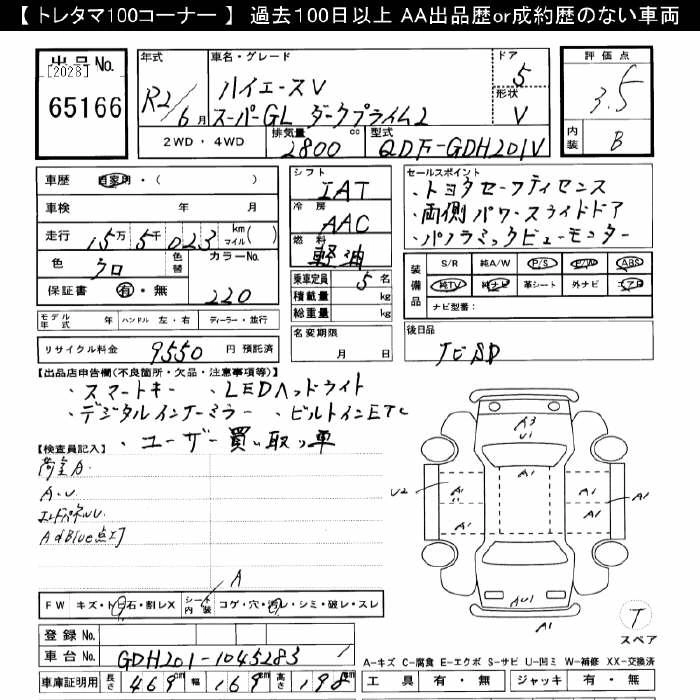 【 トレタマ100コーナー 】 過去100日以上 AA出品歴or成約歴のない車両
出品No.
[2028]
65166
年式
R2/6月
車名・グレード
ハイエースV
スーパーGL ダークプライム2
ドア
5
形状
V
評価点
3.5
内装
B
2WD・4WD
排気量
2800cc
型式
QDF-GDH201V
車歴 自家用・( )
車検 年 月
走行 15万5千023 km マイル( )
色 クロ 色替 カラーNo. 220
保証書 有・無
モデル年式 年 ハンドル 左・右 ディーラー・並行
リサイクル料金 9550 円 預託済
シフト
IAT
冷房
AAC
燃料
軽油
乗車定員 5名
積載量 kg
総重量 kg
名変期限
月 日
セールスポイント
・トヨタセーフティセンス
・両側パワースライドドア
・パノラミックビューモニター
装備品
S/R 純A/W P/S P/W ABS
純TV 純ナビ 革シート 外ナビ エアB
ナビ型番:
後日品
ナビSD
【出品店申告欄(不良箇所・欠品・注意事項等)】
・スマートキー ・LEDヘッドライト
・デジタルインナーミラー ・ビルトインETC
・ユーザー買い取り車
【検査員記入】
荷室A.
A.U
エンドパネルU
AdBlue点灯
A
FW キズ・ト日石・割レX シート内装 コゲ・穴・汚レ・シミ・破レ・スレ
登録No.
車台No. GDH201-1045283 1
車庫証明用 長さ 469cm 幅 169cm 高さ 198cm
A1
A3
U1
A1
U2
A1
U1
A1
A1
A1
A1
AU1
A1
T
スペア
A-キズ C-腐食 E-エクボ S-サビ U-凹ミ W-補修 XX-交換済
工具 有・無 ジャッキ 有・無